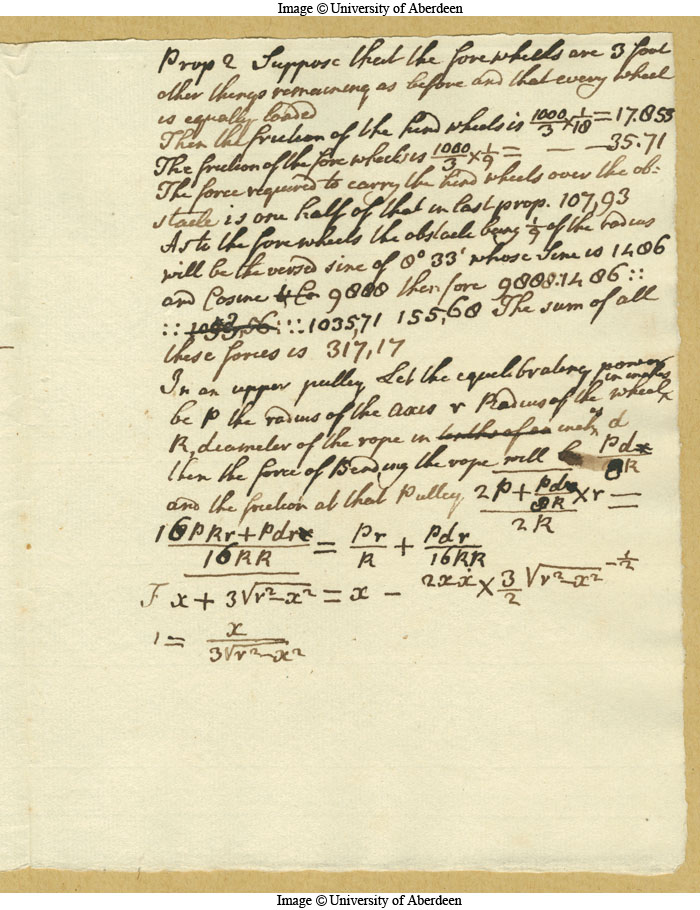 Image © University of Aberdeen
Prop 2 Suppose that the fore wheels are 3 foot
other things remaining as before and that every wheel
is equally loaded
Then the friction of the hind wheels is 1000/3 × 1/18 = 17.853
The friction of the fore wheels is 1000/3 × 1/9 = — — 35.71
The force required to carry the hind wheels over the ob:
stacle is one half of that in last prop. 107,93
As to the fore wheels the obstacle being 1/9 of the radius
will be the versed sine of 8° 33' whose Sine is 1486
and Cosine 9888 therefore 9888:1486::
:: :: 1035,71 155,68 The sum of all
these forces is 317,17
In an upper pulley Let the equilibrating power
be P the radius of the axis r Radius of the wheel in inches
R, diameter of the rope in tenths of an inch d
then the force of Bending the rope will be Pd/8R
and the friction at that Pulley 2P + Pd/8R × r =
2R
16PRr + Pdr/16RR = Pr/R + Pdr/16RR
F x + 3√r²-x² = ẋ - 2xẋ × 3/2 √r²-x² -1/2
1 = x/3√r²-x²
Image © University of Aberdeen